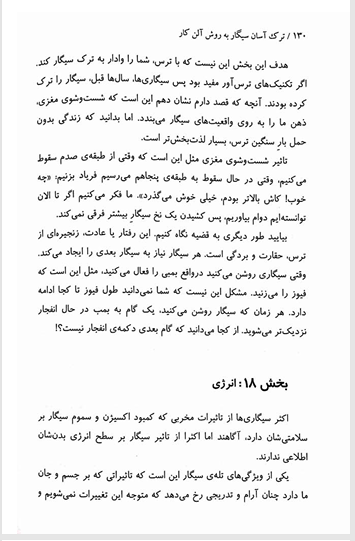 ۱۳۰ / ترک آسان سیگار به روش آلن کار
هدف این بخش این نیست که با ترس، شما را وادار به ترک سیگار کند.
اگر تکنیک‌های ترس‌آور مفید بود پس سیگاری‌ها، سال‌ها قبل، سیگار را ترک
کرده بودند. آنچه که قصد دارم نشان دهم این است که شست‌وشوی مغزی،
ذهن ما را به روی واقعیت‌های سیگار می‌بندد. اما بدانید که زندگی بدون
حمل بار سنگین ترس، بسیار لذت‌بخش‌تر است.
تاثیر شست‌وشوی مغزی مثل این است که وقتی از طبقه‌ی صدم سقوط
می‌کنیم، وقتی در حال سقوط به طبقه‌ی پنجاهم می‌رسیم فریاد بزنیم: «چه
خوب! کاش بالاتر بودم. خیلی خوش می‌گذرد». ما فکر می‌کنیم اگر تا الان
توانسته‌ایم دوام بیاوریم، پس کشیدن یک نخ سیگار بیشتر فرقی نمی‌کند.
بیایید طور دیگری به قضیه نگاه کنیم. این رفتار یا عادت، زنجیره‌ای از
ترس، حقارت و بردگی است. هر سیگار نیاز به سیگار بعدی را ایجاد می‌کند.
وقتی سیگاری روشن می‌کنید درواقع بمبی را فعال می‌کنید، مثل این است که
فیوز را می‌زنید. مشکل این نیست که شما نمی‌دانید طول فیوز تا کجا ادامه
دارد. هر زمان که سیگار روشن می‌کنید، یک گام به بمب در حال انفجار
نزدیک‌تر می‌شوید. از کجا می‌دانید که گام بعدی دکمه‌ی انفجار نیست؟!
بخش ۱۸: انرژی
اکثر سیگاری‌ها از تاثیرات مخربی که کمبود اکسیژن و سموم سیگار بر
سلامتی‌شان دارد، آگاهند اما اکثرا از تاثیر سیگار بر سطح انرژی بدن‌شان
اطلاعی ندارند.
یکی از ویژگی‌های تله‌ی سیگار این است که تاثیراتی که بر جسم و جان
ما دارد چنان آرام و تدریجی رخ می‌دهد که متوجه این تغییرات نمی‌شویم و